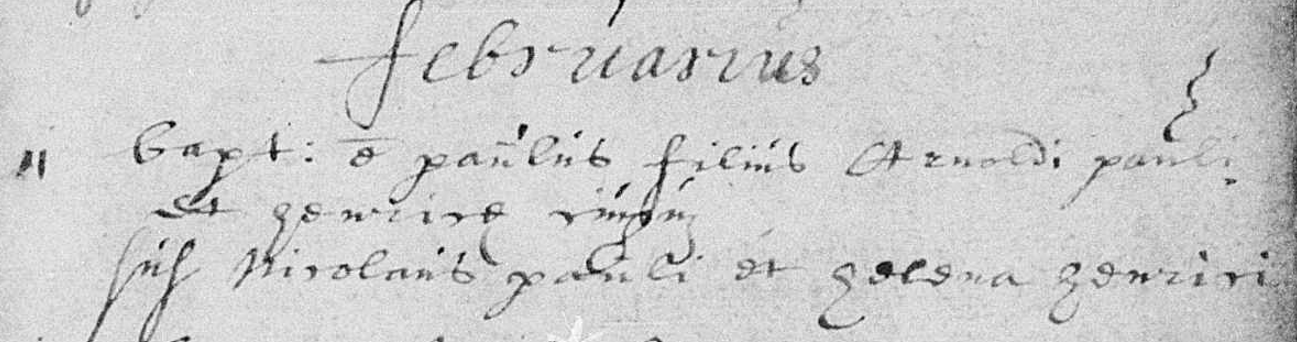 februarius
11 bapt: ē paulus filius Arnoldi pauli
et henrice
sus Nicolaus pauli et helena henrici